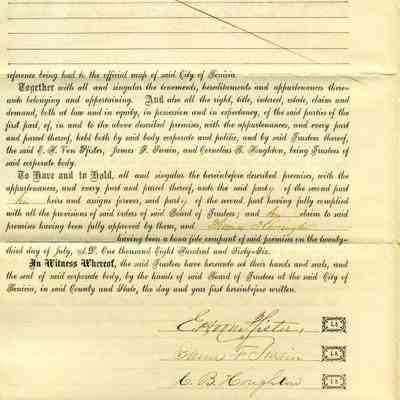 reference being had to the official map of said City of Benicia.
Together with all and singular the tenements, hereditaments and appurtenances there-
unto belonging and appertaining. And also all the right, title, interest, estate, claim and
demand, both at law and in equity, in possession and in expectancy, of the said parties of the
first part, of, in and to the above described premises, with the appurtenances, and every part
and parcel thereof, held both by said body corporate and politic, and by said Trustees thereof,
the said E. H. Von Pfister, James F. Swain, and Cornelius B. Houghton, being Trustees of
said corporate body.
To Have and to Hold, all and singular the hereinbefore described premises, with the
appurtenances, and every part and parcel thereof, unto the said party of the second part
heirs and assigns forever, said party of the second part having fully complied
with all the provisions of said orders of said Board of Trustees; and claim to said
premises having been fully approved by them, and
having been a bona fide occupant of said premises on the twenty-
third day of July, A.D. One thousand Eight Hundred and Fifty-Six.
In Witness Whereof, the said Trustees have hereunto set their hands and seals, and
the seal of said corporate body, by the hands of said Board of Trustees at the said City of
Benicia, in said County and State, the day and year first hereinbefore written.
E H Von Pfister, L S
James F. Swain L S
C. B. Houghton L S